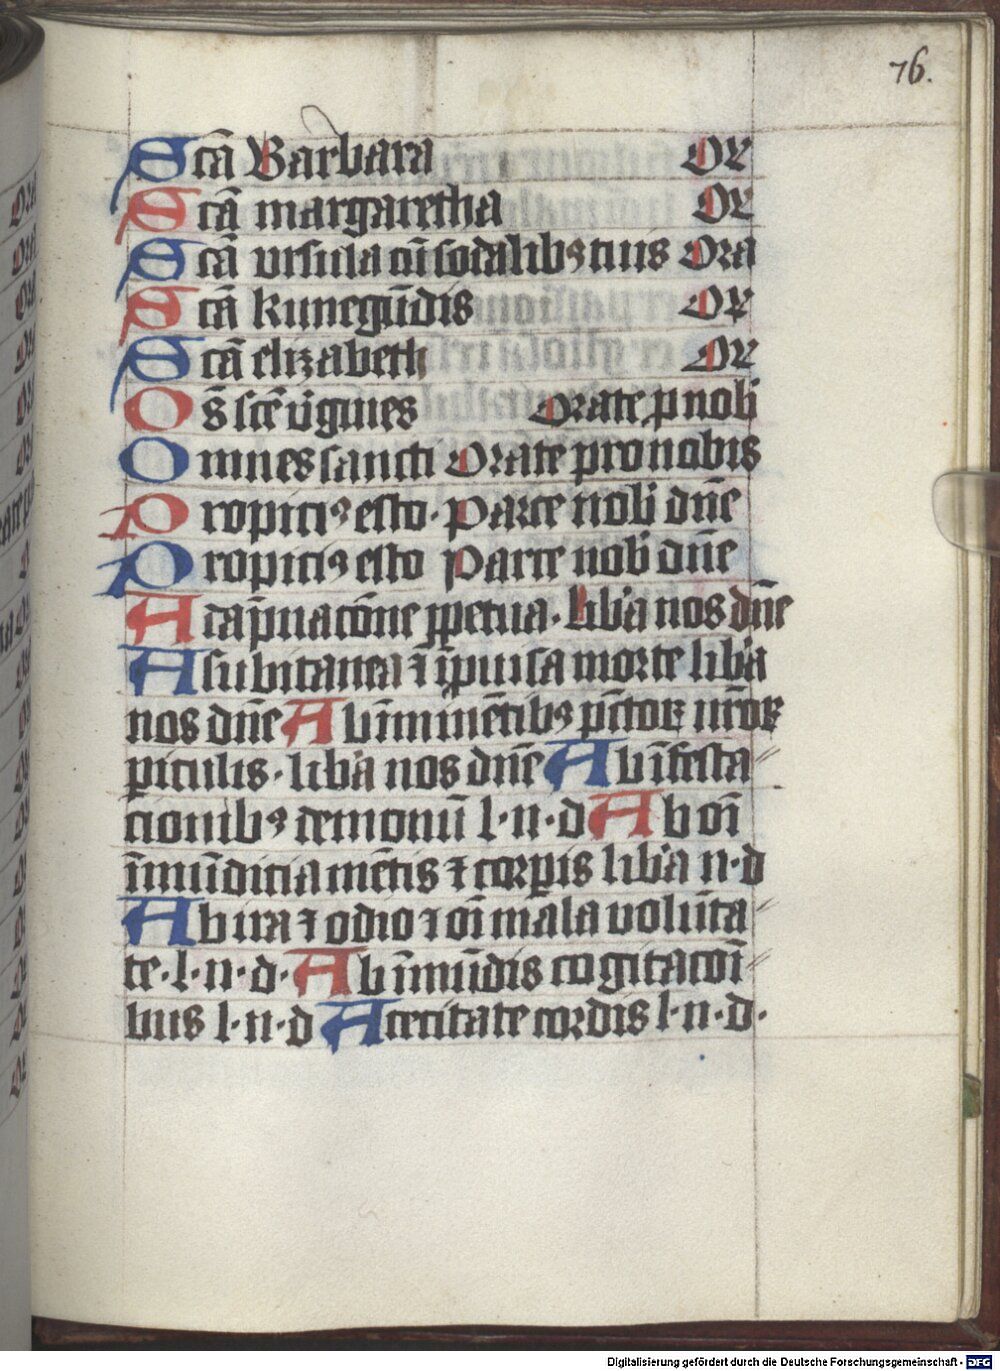 76.
Sctā Barbara Or
Sctā margaretha Or
Sctā vrsula cū sodalibꝰ tuis Ora
Sctā kunegūdis Or
Sctā elizabeth Or
Os̄ scte v̄gines Orate p̱ nob̄
Omnes sancti Orate pro nobis
Propitiꝰ esto · Parce nob̄ dn̄e
Propitiꝰ esto Parce nob̄ dn̄e
A dāp̄nacōne ꝑpetua · lib̄a nos dn̄e
A subitanea ⁊ īp̱uisa morte lib̄a
nos dn̄e Ab īminētibꝰ pc̄toꝝ nr̄oꝝ
ꝑiculis · lib̄a nos dn̄e Ab īfesta
cionibꝰ demonū l · n · d Ab oī
īmūdicia mētis ⁊ corꝑis lib̄a n · d
Ab ira ⁊ odio ⁊ oī mala volūta
te · l · n · d · Ab īmūdis cogitacoī
bus l · n · d A cecitate cordis l · n · d ·
Digitalisierung gefördert durch die Deutsche Forschungsgemeinschaft - DFG